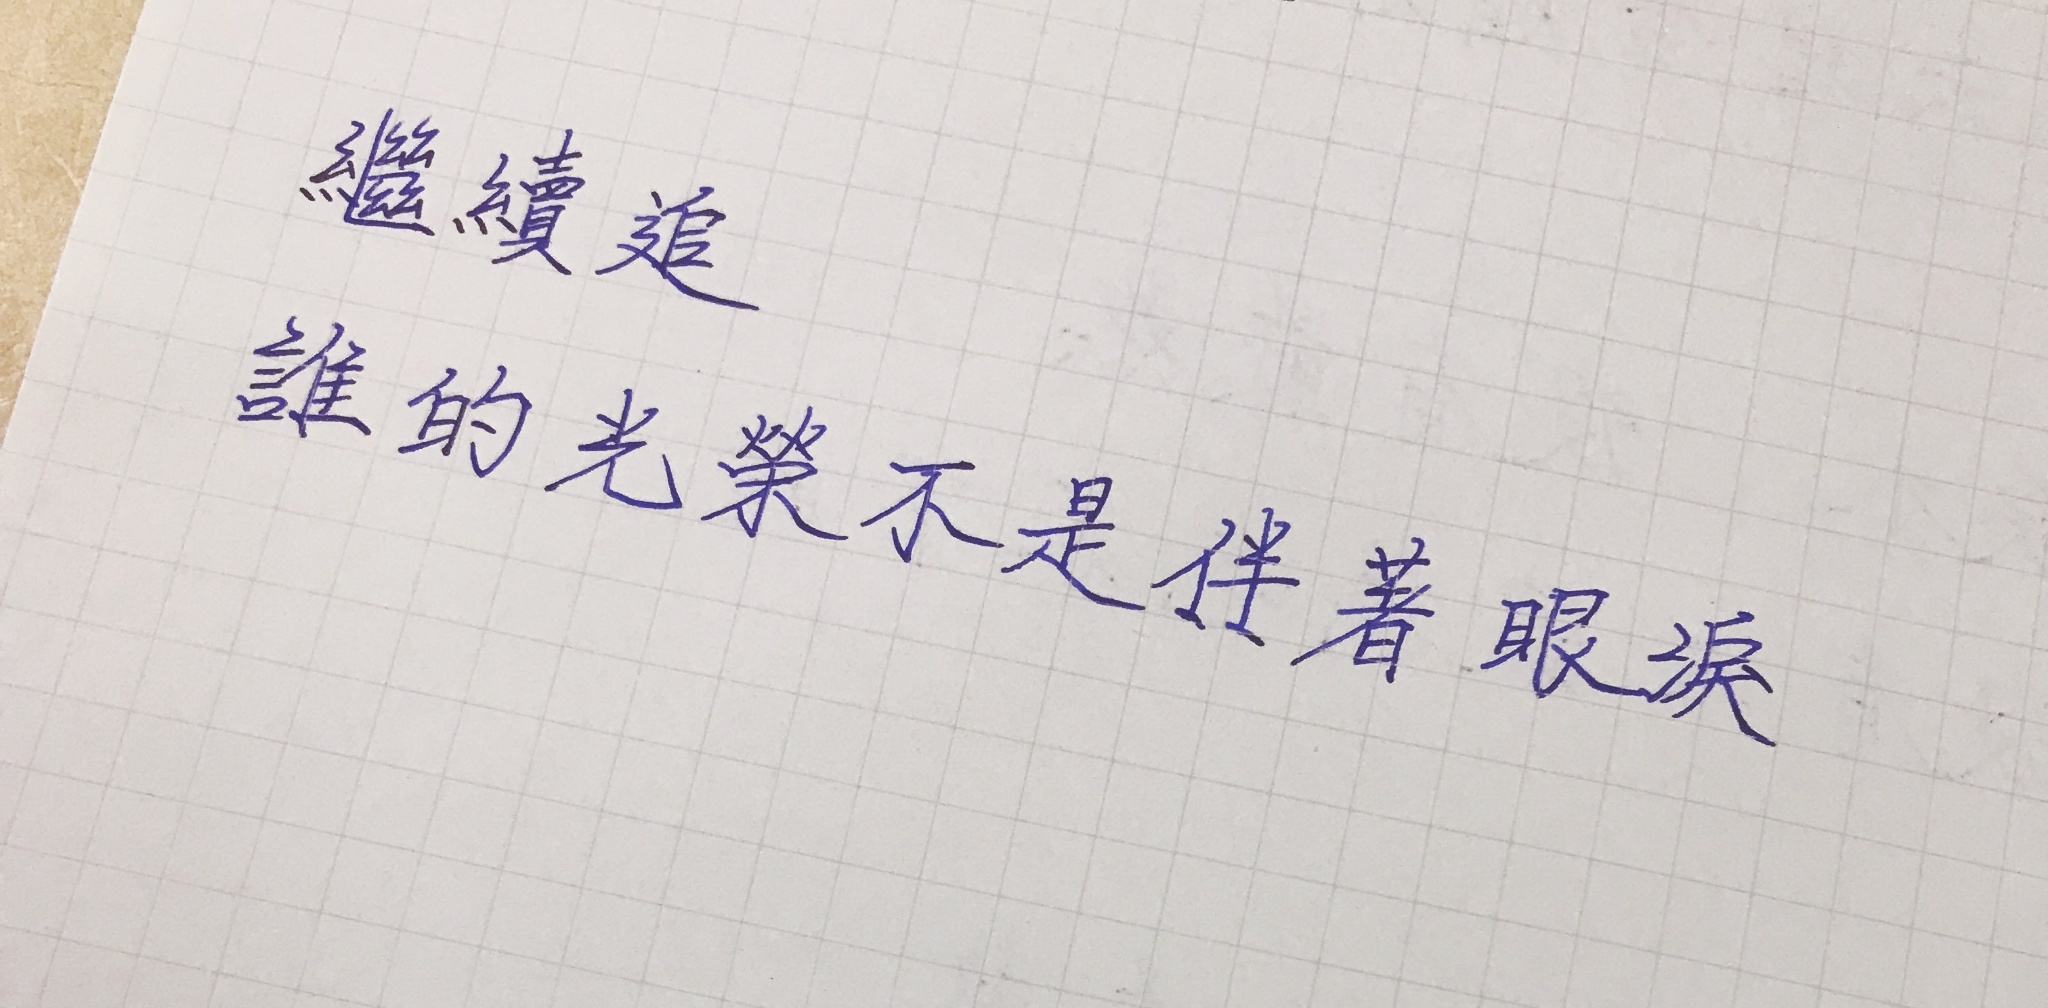 繼續追
誰的光榮不是伴著眼淚